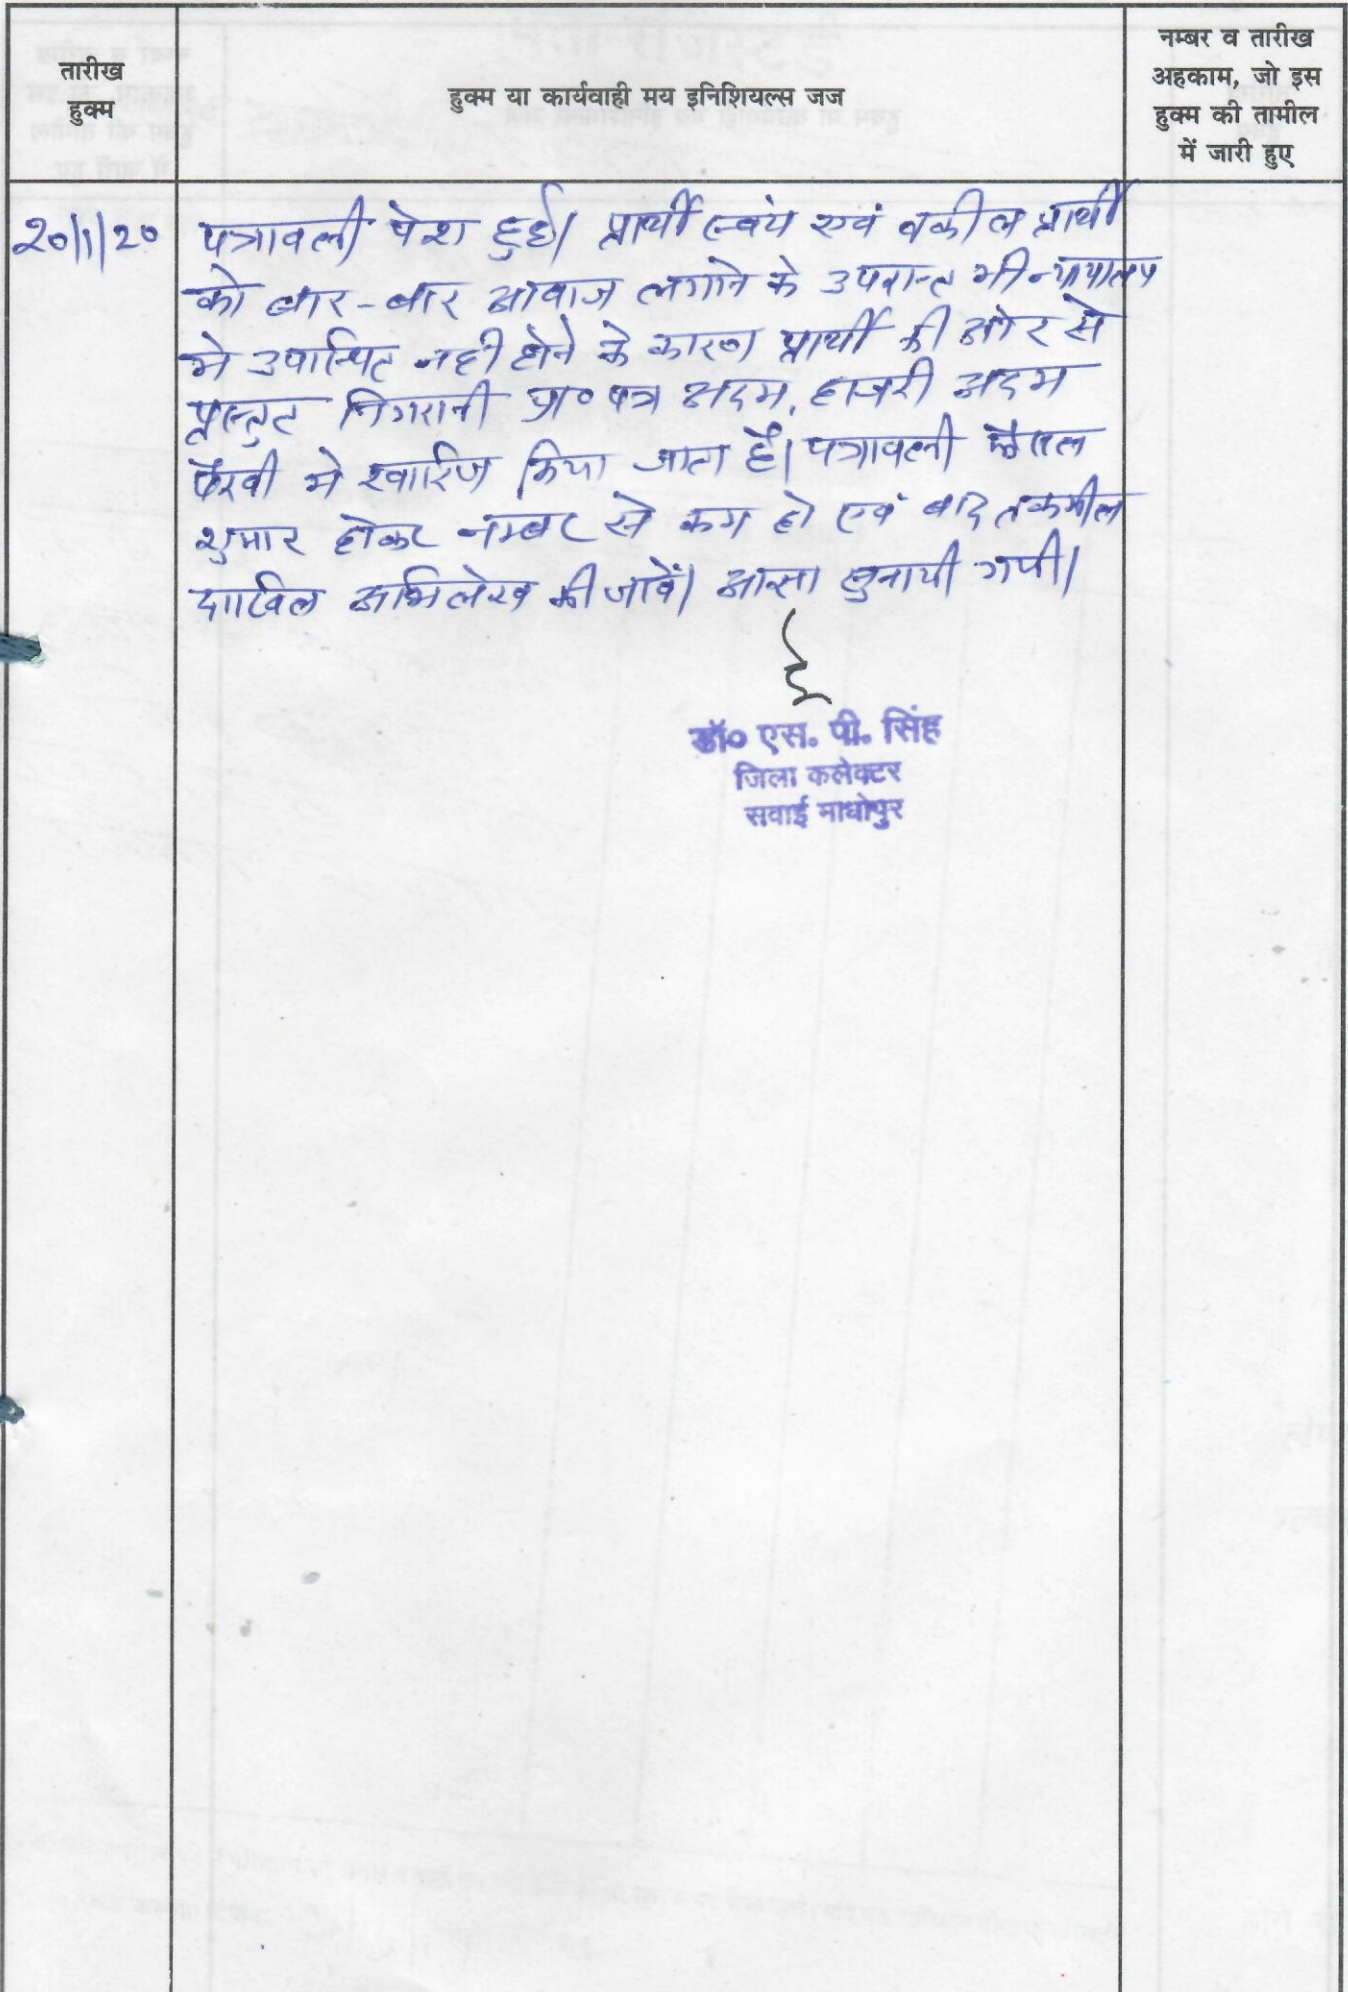 तारीख
हुक्म
हुक्म या कार्यवाही मय इनिशियल्स जज
नम्बर व तारीख
अहकाम, जो इस
हुक्म की तामील
में जारी हुए
20/1/20
पत्रावली पेश हुई। प्रार्थी स्वंय एवं वकील प्रार्थी
को बार-बार आवाज लगाने के उपरान्त भी न्यायालय
मे उपस्थित नही होने के कारण प्रार्थी की ओर से
प्रस्तुत निगरानी प्रा० पत्र अदम, हाजरी अदम
पैरवी मे खारिज किया जाता है। पत्रावली फैसल
शुमार होकर नम्बर से कम हो एवं बाद तकमील
दाखिल अभिलेख की जावें। आज्ञा सुनायी गयी।
डॉ० एस. पी. सिंह
जिला कलेक्टर
सवाई माधोपुर